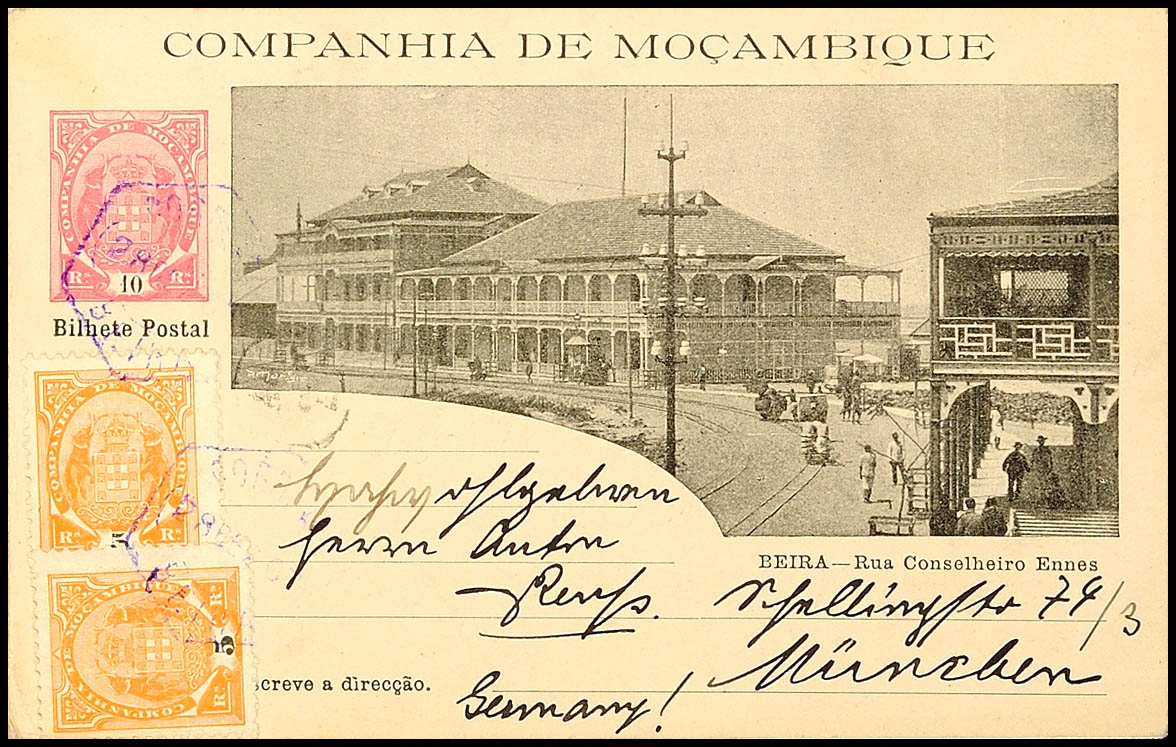 COMPANHIA DE MOÇAMBIQUE
COMPANHIA DE MOÇAMBIQUE
Rs 10 Rs
Bilhete Postal
COMPANHIA DE MOÇAMBIQUE
Rs 5 Rs
COMPANHIA DE MOÇAMBIQUE
Rs 5 Rs
BEIRA—Rua Conselheiro Ennes
Herrn Anton
Schellingstr 74/3
München
screve a direcção.
Germany!